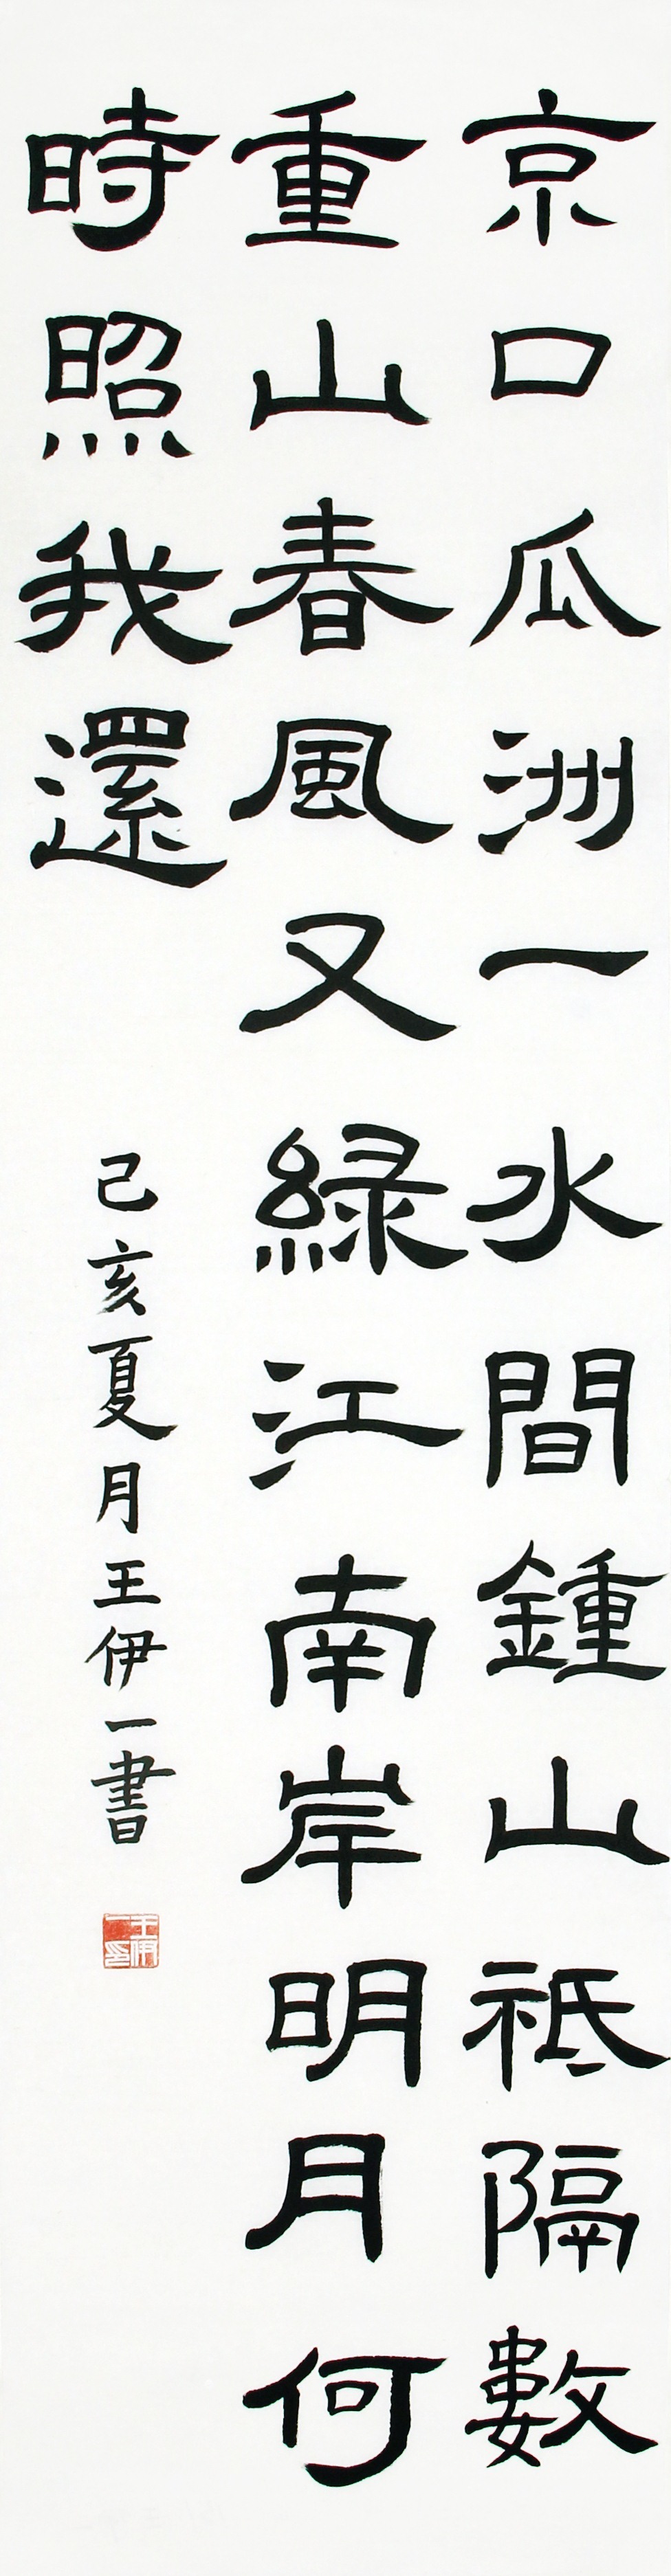 京口瓜洲一水間鍾山祗隔數
重山春風又綠江南岸明月何
時照我還
己亥夏月王伊一書
王伊一印